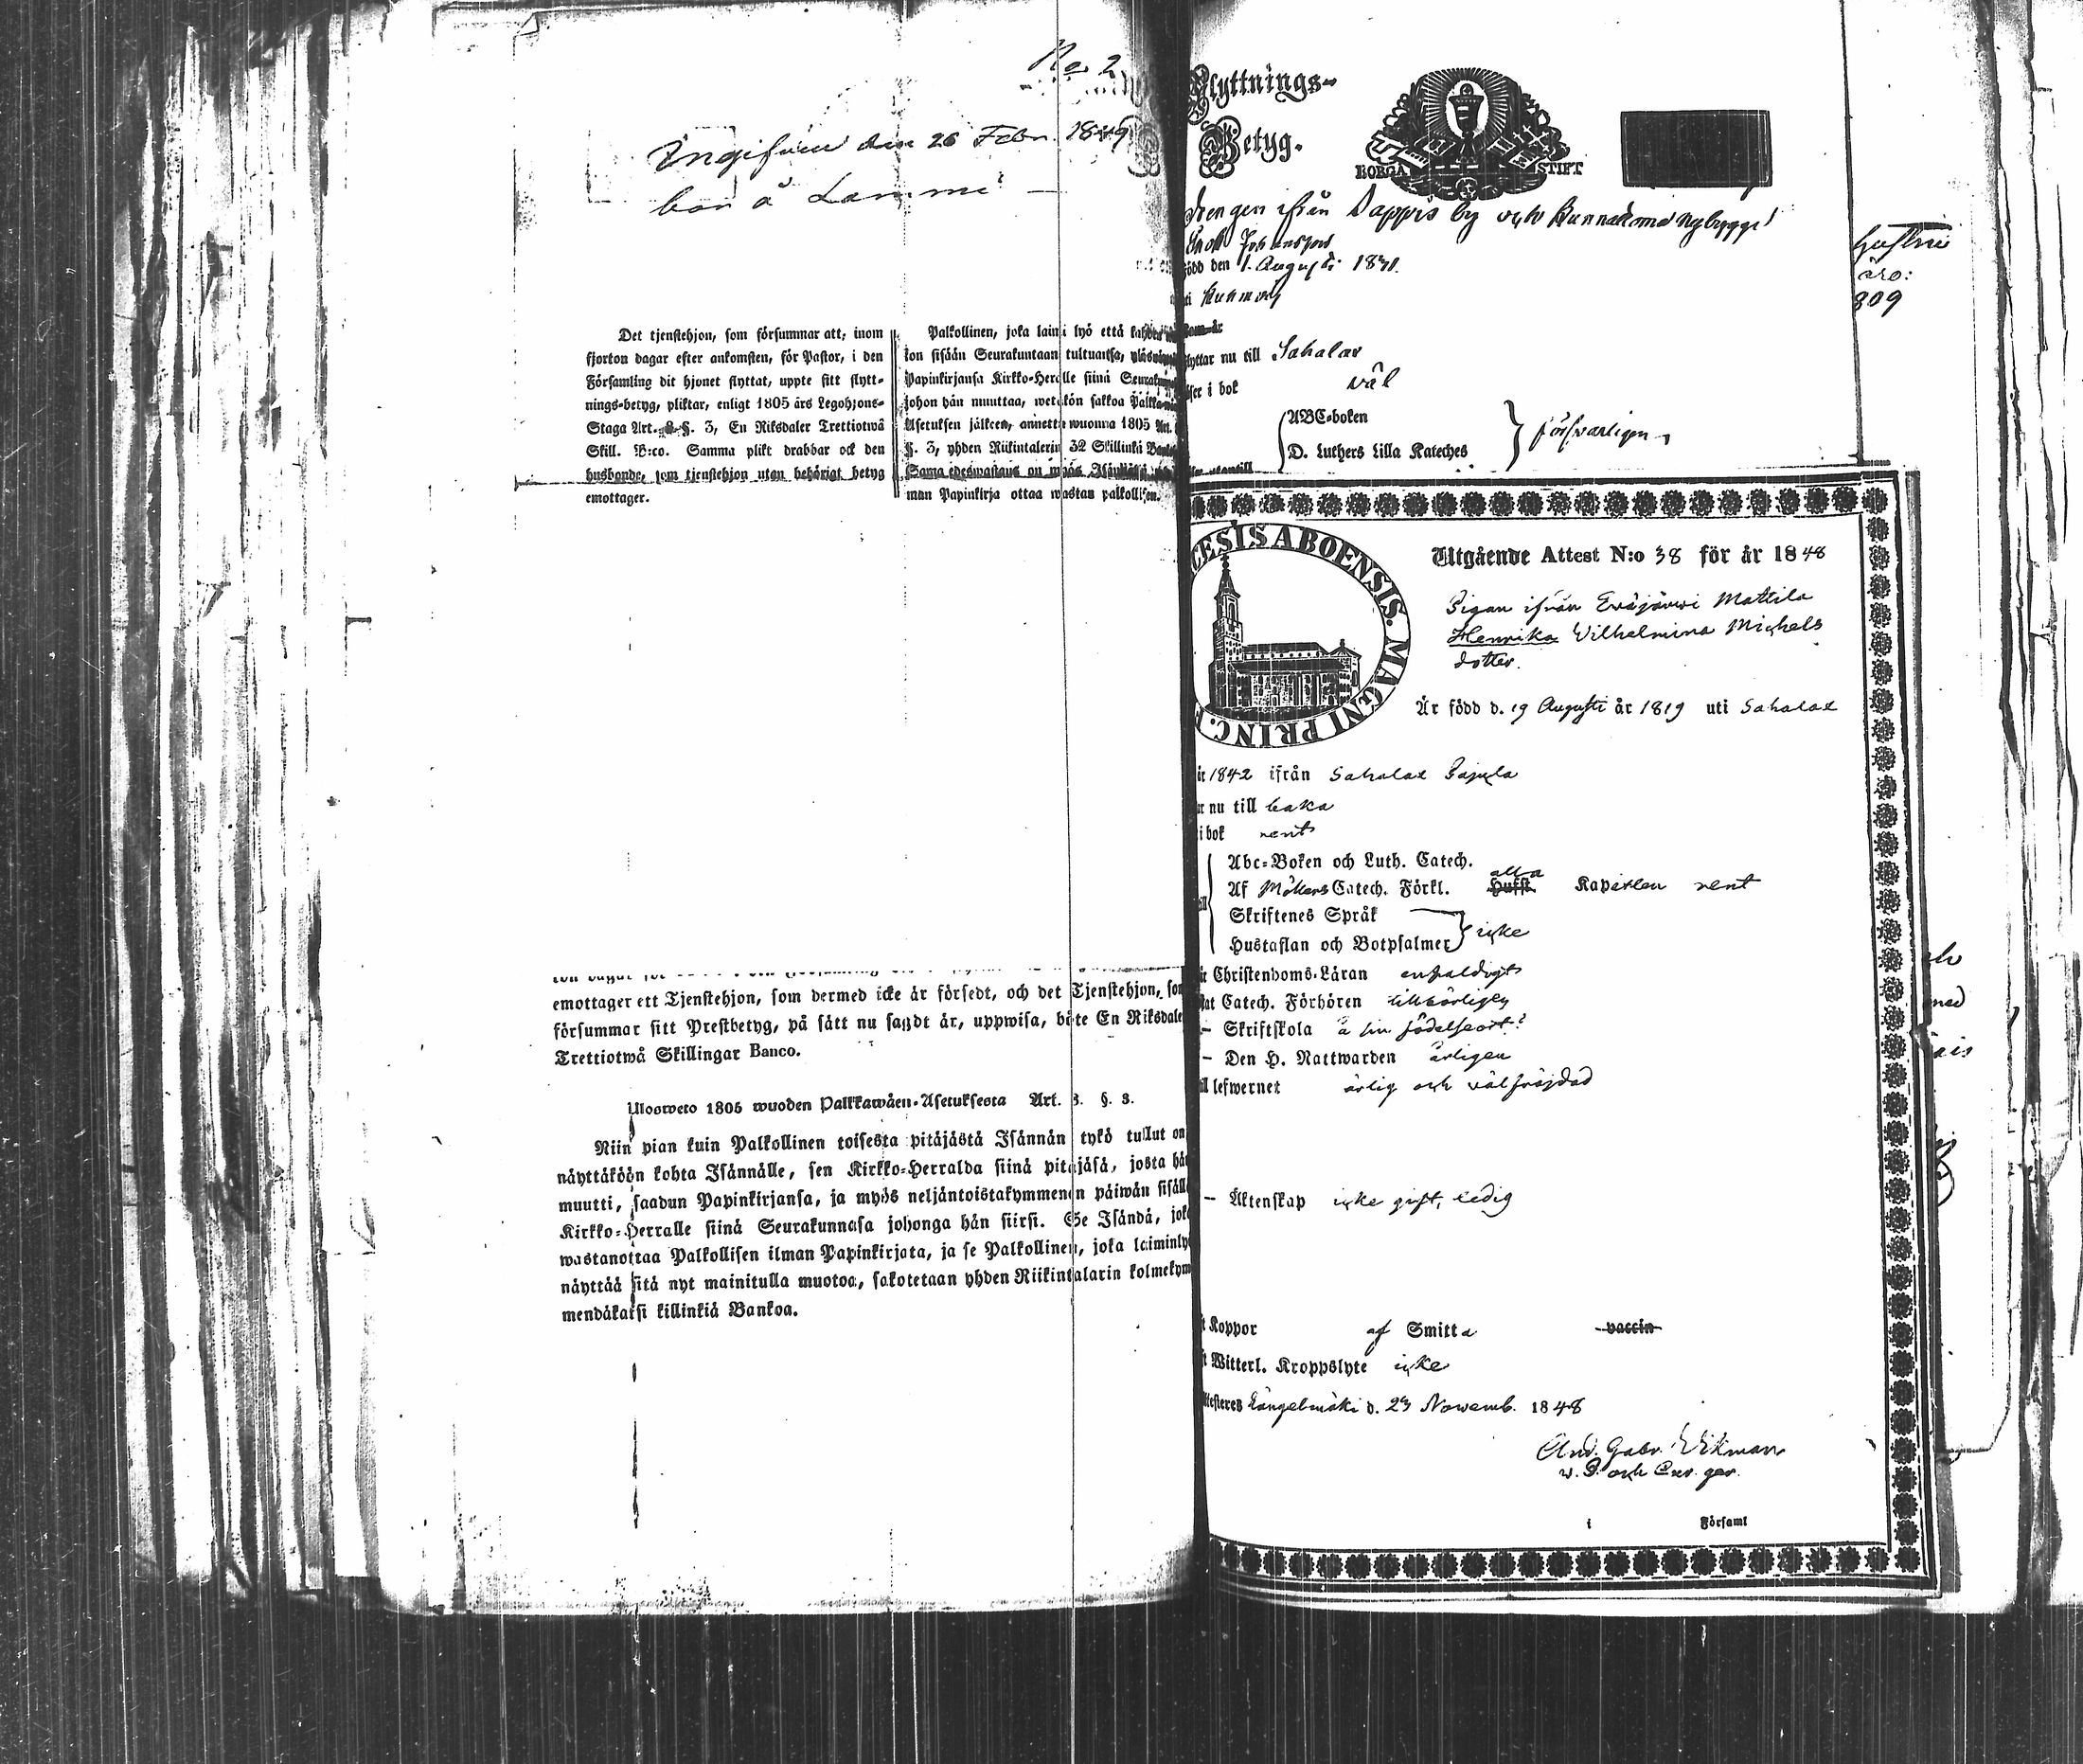 No 2
Ingifven den 26 Febr. 1849
bor å Lammi
Det tjenstehjon, som försummar att, inom
fjorton dagar efter ankomsten, för Pastor, i den
Församling dit hjonet flyttat, uppte sitt flytt-
nings-betyg, pliktar, enligt 1805 års Legohjons-
Stagа Art. 8 §. 3, En Riksdaler Trettiotwå
Skill. B:co. Samma plikt drabbar ock den
husbonde, som tjenstehjon utan behörigt betyg
emottager.
Palkollinen, joka laimi lyö että kahden
ton sisään Seurakuntaan tultuansa,
Papinkirjansa Kirkko-Herralle siinä
johon hän muuttaa, wetäkön sakkoa
Asetuksen jälkeen, annettu wuonna 1805 Art.
§. 3, yhden Riikintalerin 32 Skillinkiä
Sama edeswastaus on myös
man Papinkirja ottaa wastan palkollisen.
emottager ett Tjenstehjon, som dermed icke är försedt, och det Tjenstehjon, som
försummar sitt Prestbetyg, på sätt nu sagdt är, uppwisa, böte En Riksdaler
Trettiotwå Skillingar Banco.
Ulosweto 1805 wuoden Palkkawäen-Asetuksesta Art. 8. §. 3.
Niin pian kuin Palkollinen toisesta pitäjästä Isännän tykö tullut on
näyttäköön kohta Isännälle, sen Kirkko-Herralda siinä pitäjäsä, josta hän
muutti, saadun Papinkirjansa, ja myös neljäntoistakymmenen päiwän sisällä
Kirkko-Herralle siinä Seurakunnasa johonga hän siirsi. Se Isändä, joka
wastanottaa Palkollisen ilman Papinkirjata, ja se Palkollinen, joka laiminlyö
näyttää sitä nyt mainitulla muotoa, sakotetaan yhden Riikintalarin kolmekym
mendäkaksi killinkiä Bankoa.
Flyttnings-
Betyg.
BORGÅ STIFT
Drengen ifrån Pappis by och nybygge
Johansson
född den 1. Augusti 18
Kuhmois
flyttar nu till Sahalax
läser i bok väl
ABC-boken
D. Luthers Lilla Kateches
försvarligen
809
CESIS ABOENSIS. MAGNI PRINC. F
Utgående Attest N:o 38 för år 1848
Pigan ifrån Eräjärvi Mattila
Henrika Vilhelmina Michels
dotter.
Är född d. 19 Augusti år 1819 uti Sahalax
år 1842 ifrån Sahalax Pajula
nu till baka
i bok rent
Abc-Boken och Luth. Catech.
Af Möllers Catech. Förkl. Hufst. alla Kapitlen rent
Skriftenes Språk
Hustaflan och Botpsalmer icke
Christendoms-Läran enfaldigt
Catech. Förhören tillbörligen
Skriftskola å sin födelseort
Den H. Nattwarden årligen
till lefwernet ärlig och välfräjdad
Äktenskap icke gift, ledig
Koppor af Smitta vaccin
Witterl. Kroppslyte icke
Attesteres Längelmäki d. 23 Novemb. 1848
And. Gabr. Wikman
v. P. och Cur. ger.
i Församl